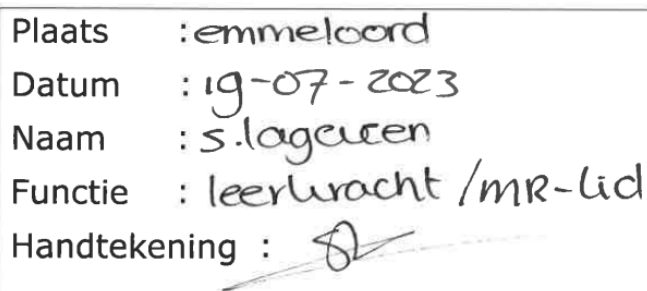 Plaats : emmeloord
Datum : 19-07-2023
Naam : s.
Functie : leerkracht / MR-lid
Handtekening :